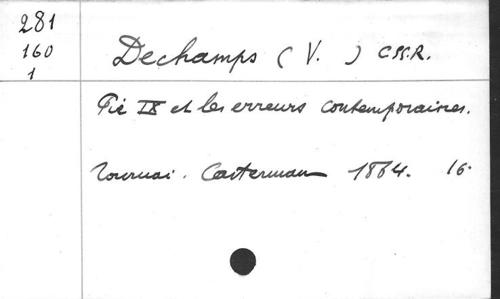 281
160
1
Dechamps (V.) C.SS.R.
Pie IX et les erreurs contemporaines.
Tournai. Casterman 1864. 16°